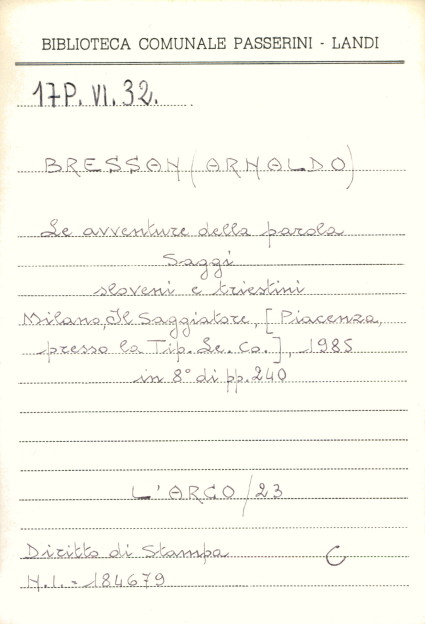 BIBLIOTECA COMUNALE PASSERINI - LANDI
17P. VI. 32.
BRESSAN (ARNALDO)
Le avventure della parola
Saggi
sloveni e triestini
Milano, Il Saggiatore, [Piacenza,
presso la Tip. Le. Co.], 1985
in 8° di pp. 240
L'ARCO / 23
Diritto di Stampa C
N.I. = 184679